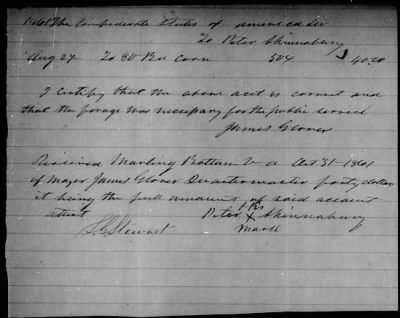 1861 The Confederate States of america Dr
To Peter Skinnabury
Aug 27 To 80 Bu Corn 50¢ $ 40.00
I certify that the above acct is correct and
that the forage was necessary for the public service
James Glover
Received Marling Bottom Va Oct 31 1861
of Major James Glover Quartermaster forty dollars
it being the full amount of said account
attest Peter X Skinnabury
his
S C Stewart mark